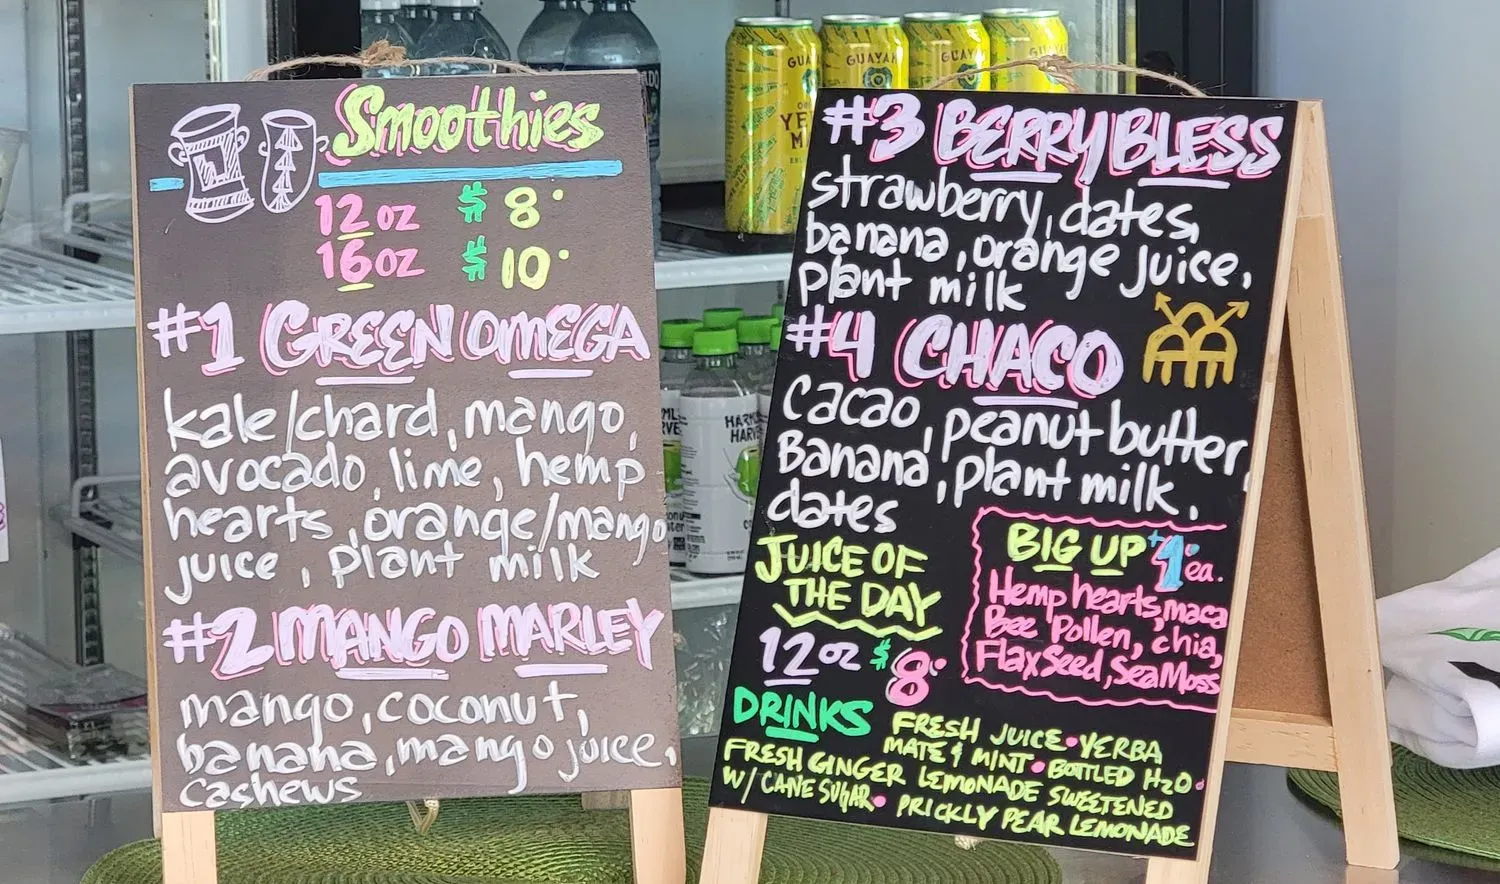 Smoothies
12oz $8.
16oz $10.
#1 GREEN OMEGA
kale/chard, mango,
avocado, lime, hemp
hearts, orange/mango
juice, plant milk
#2 MANGO MARLEY
mango, coconut,
banana, mango juice,
cashews
#3 BERRY BLESS
strawberry, dates,
banana, orange juice,
plant milk
#4 CHACO
Cacao, peanut butter,
Banana, plant milk,
dates
JUICE OF
THE DAY
12oz $8.
BIG UP +1. ea.
Hemp hearts, maca
Bee Pollen, chia,
Flax Seed, Sea Moss
DRINKS
FRESH JUICE • YERBA
MATE & MINT • BOTTLED H2O •
FRESH GINGER LEMONADE SWEETENED
W/ CANE SUGAR • PRICKLY PEAR LEMONADE
GUAYA
HARM
HARV